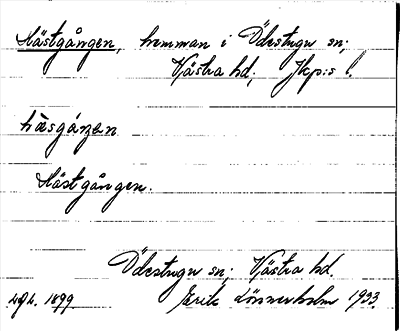 Hästgången, hemman i Ödestugu sn;
Västra hd; Jkp:s l.
hä̀sgåŋen
Hästgången.
Ödestugu sn; Västra hd.
1899. Erik Lönnerholm 1933.